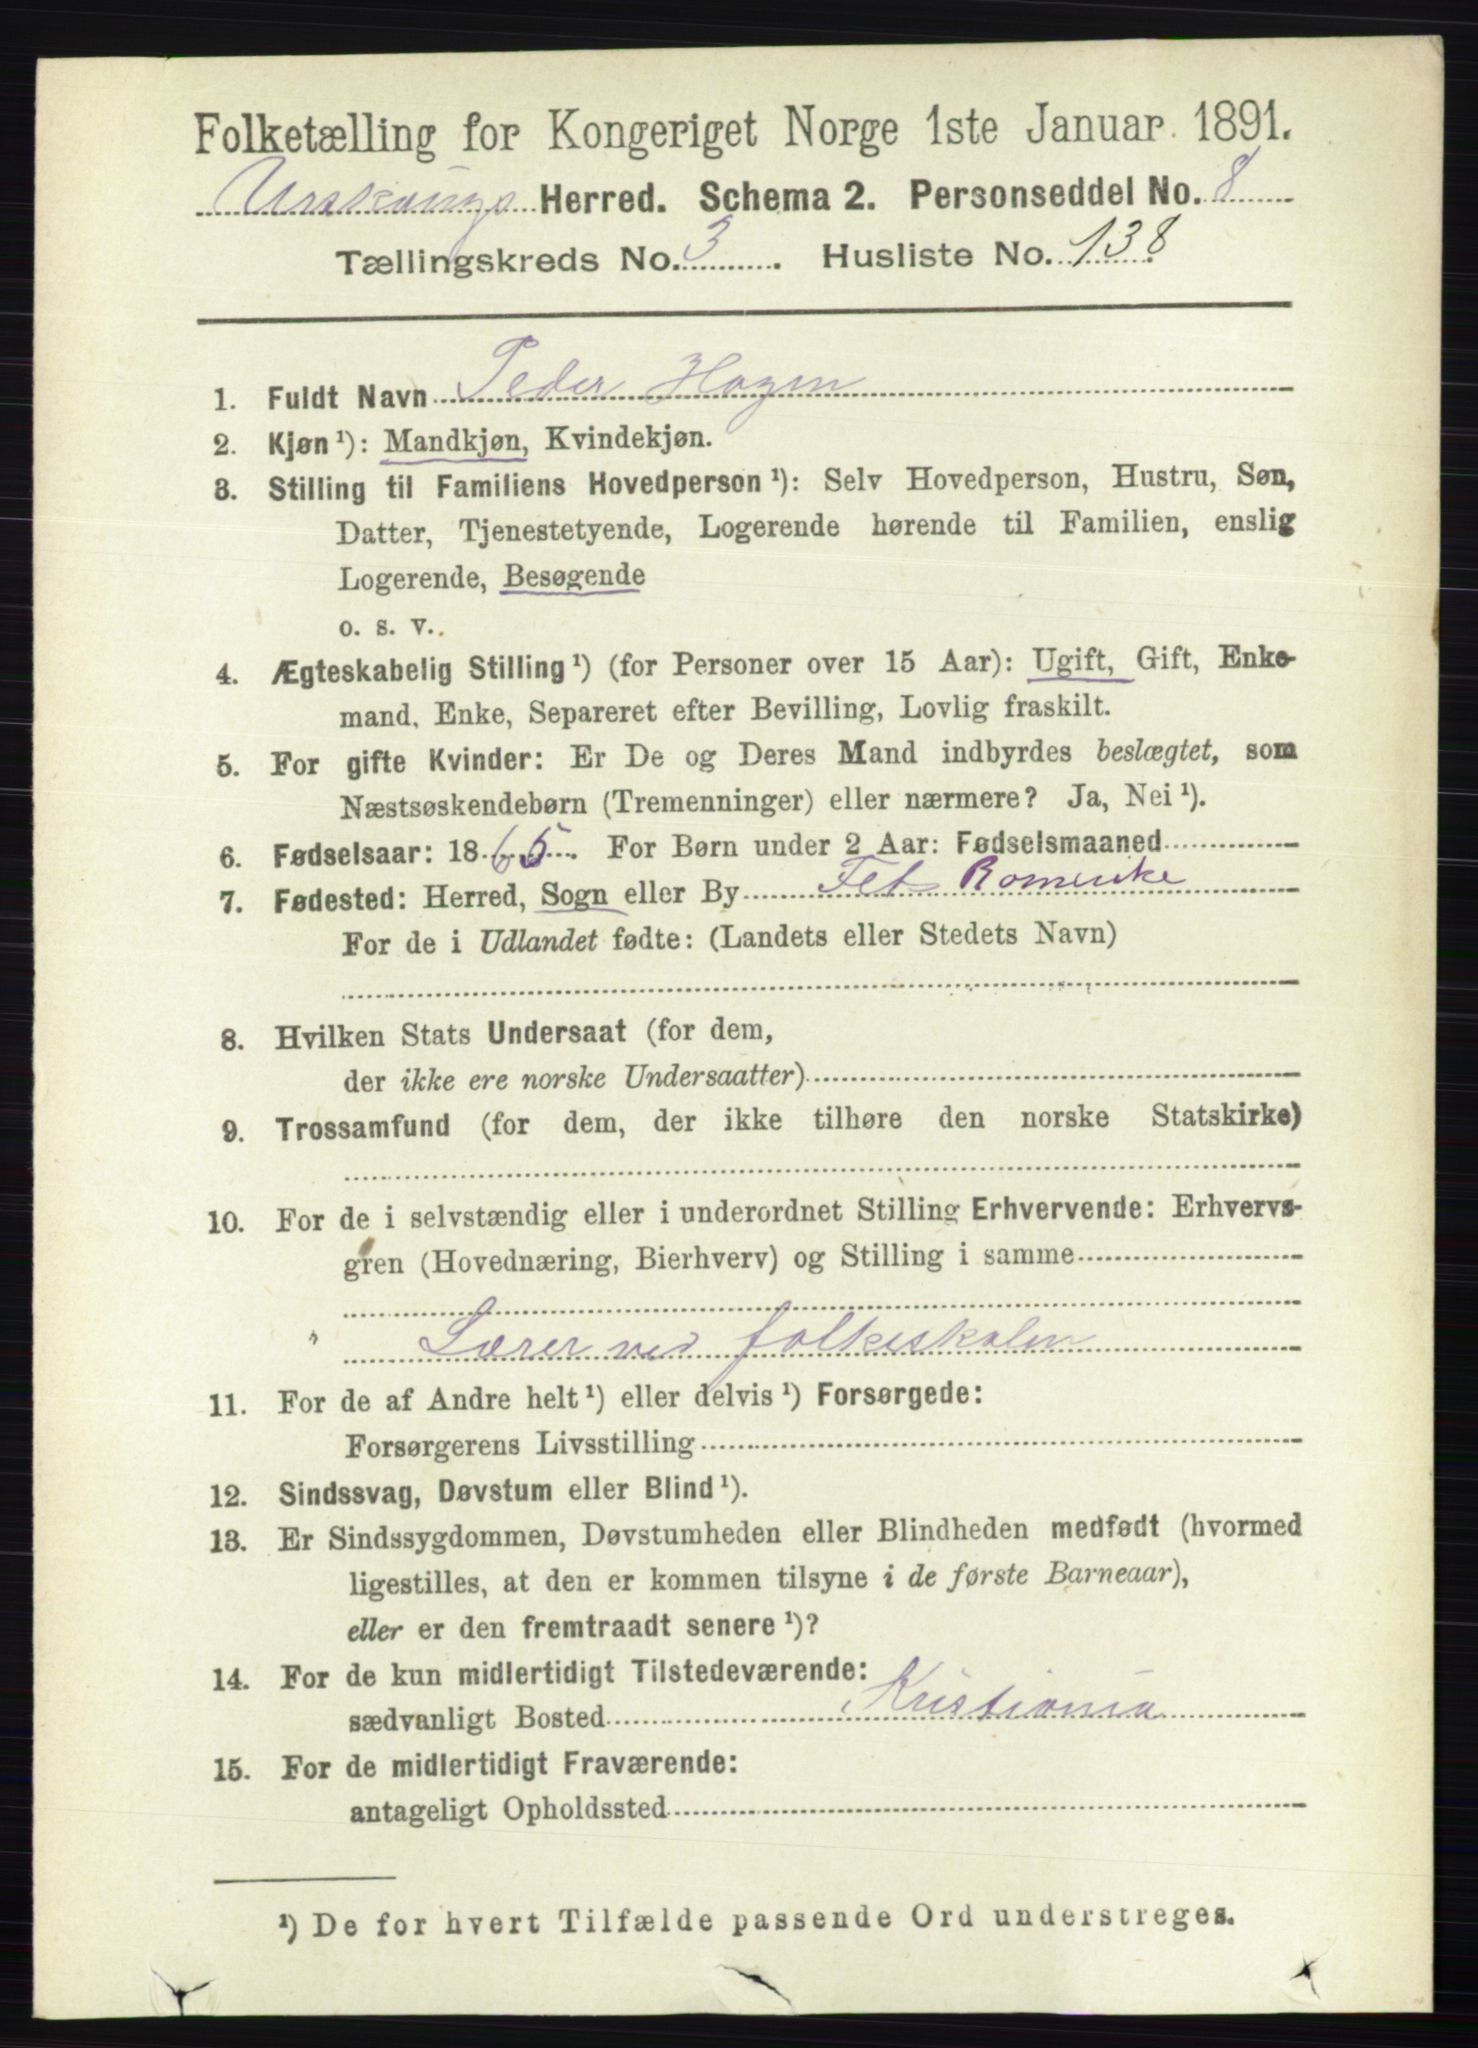 Folketælling for Kongeriget Norge 1ste Januar 1891.
Urskougs Herred. Schema 2. Personseddel No. 8
Tællingskreds No. 3. Husliste No. 138
1. Fuldt Navn Peder Hagen
2. Kjøn ¹): Mandkjøn, Kvindekjøn.
3. Stilling til Familiens Hovedperson ¹): Selv Hovedperson, Hustru, Søn,
Datter, Tjenestetyende, Logerende hørende til Familien, enslig
Logerende, Besøgende
o. s. v..
4. Ægteskabelig Stilling ¹) (for Personer over 15 Aar): Ugift, Gift, Enke-
mand, Enke, Separeret efter Bevilling, Lovlig fraskilt.
5. For gifte Kvinder: Er De og Deres Mand indbyrdes beslægtet, som
Næstsøskendebørn (Tremenninger) eller nærmere? Ja, Nei ¹).
6. Fødselsaar: 1865. For Børn under 2 Aar: Fødselsmaaned
7. Fødested: Herred, Sogn eller By Fet Romerike
For de i Udlandet fødte: (Landets eller Stedets Navn)
8. Hvilken Stats Undersaat (for dem,
der ikke ere norske Undersaatter)
9. Trossamfund (for dem, der ikke tilhøre den norske Statskirke)
10. For de i selvstændig eller i underordnet Stilling Erhvervende: Erhvervs-
gren (Hovednæring, Bierhverv) og Stilling i samme
Lærer ved folkeskolen
11. For de af Andre helt ¹) eller delvis ¹) Forsørgede:
Forsørgerens Livsstilling
12. Sindssvag, Døvstum eller Blind ¹).
13. Er Sindssygdommen, Døvstumheden eller Blindheden medfødt (hvormed
ligestilles, at den er kommen tilsyne i de første Barneaar),
eller er den fremtraadt senere ¹)?
14. For de kun midlertidigt Tilstedeværende:
sædvanligt Bosted Kristiania
15. For de midlertidigt Fraværende:
antageligt Opholdssted
¹) De for hvert Tilfælde passende Ord understreges.